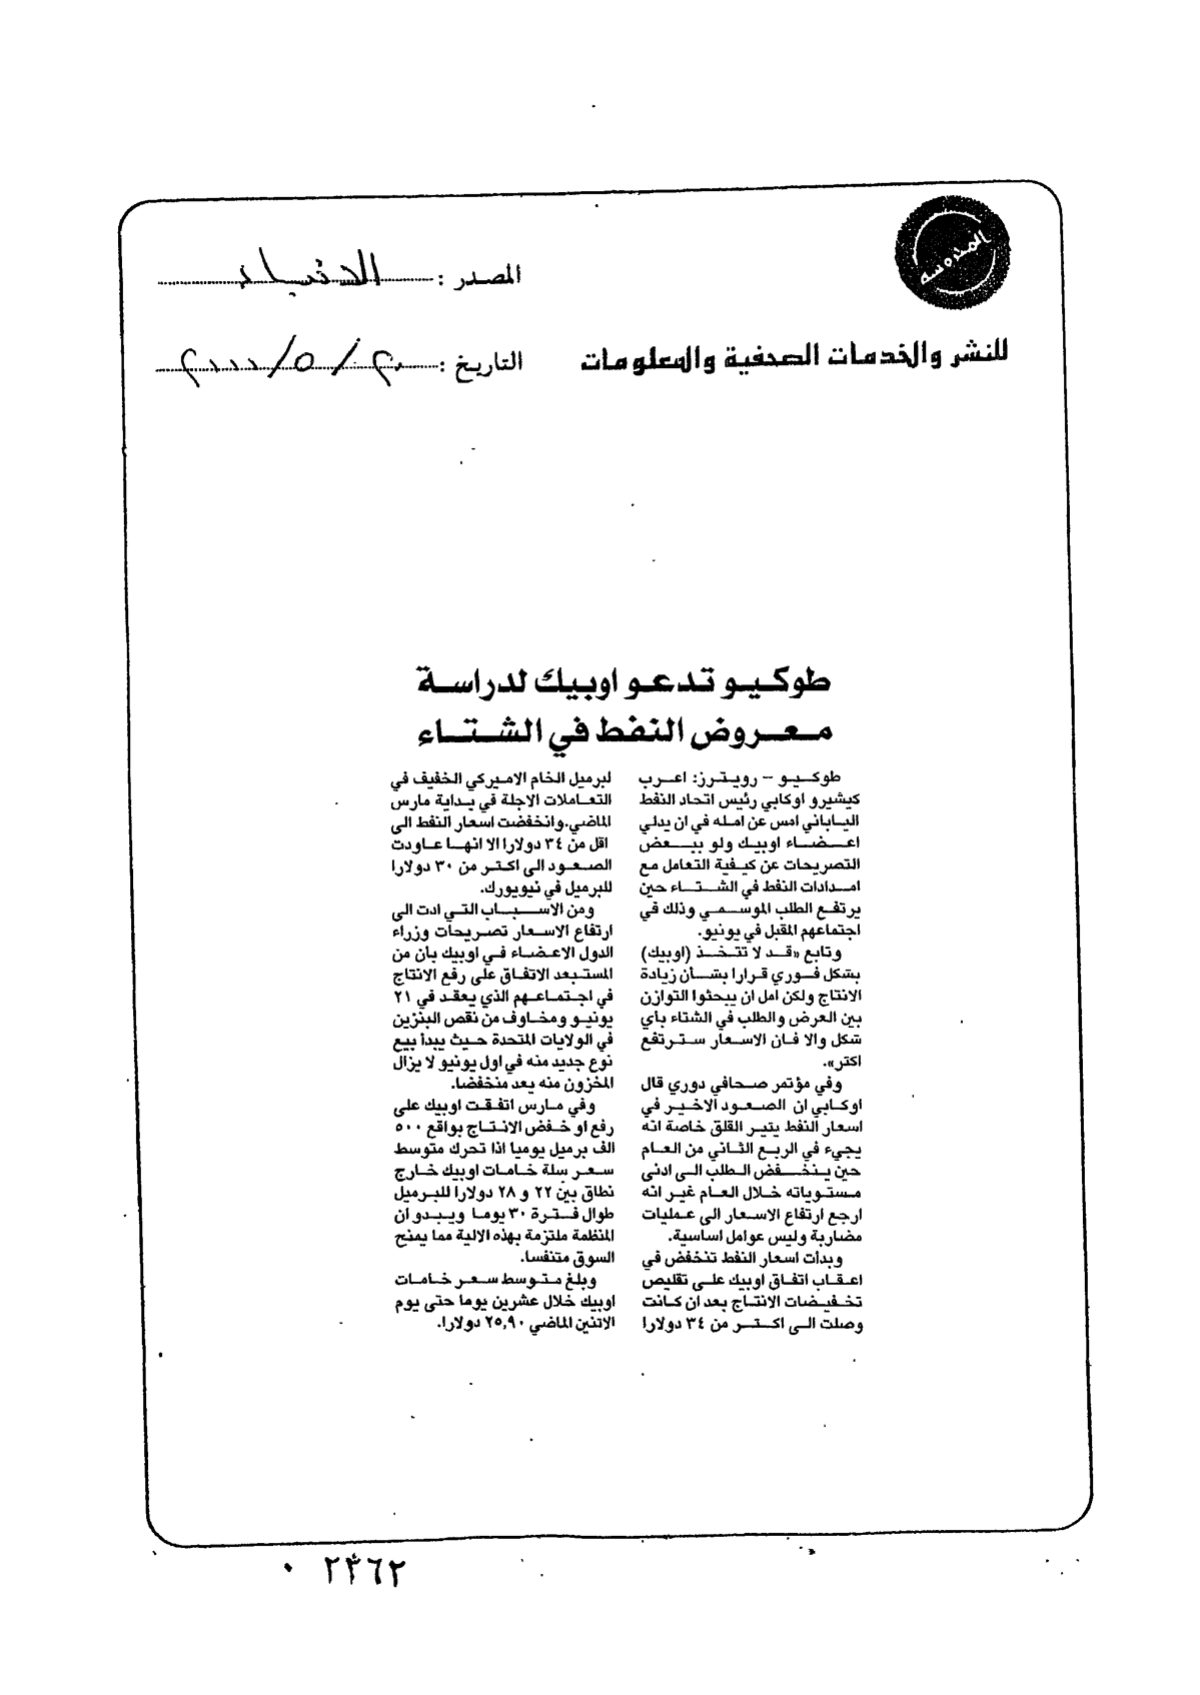 المحروسة
للنشر والخدمات الصحفية والمعلومات
المصدر : الانباء
التاريخ : ٣٠ / ٥ / ٢٠٠٠
طوكيو تدعو اوبيك لدراسة
معروض النفط في الشتاء
طوكيو - رويترز: اعرب
كيشيرو اوكابي رئيس اتحاد النفط
الياباني امس عن امله في ان يدلي
اعضاء اوبيك ولو ببعض
التصريحات عن كيفية التعامل مع
امدادات النفط في الشتاء حين
يرتفع الطلب الموسمي وذلك في
اجتماعهم المقبل في يونيو.
وتابع «قد لا تتخذ (اوبيك)
بشكل فوري قرارا بشأن زيادة
الانتاج ولكن امل ان يبحثوا التوازن
بين العرض والطلب في الشتاء بأي
شكل والا فان الاسعار سترتفع
اكثر».
وفي مؤتمر صحافي دوري قال
اوكابي ان الصعود الاخير في
اسعار النفط يثير القلق خاصة انه
يجيء في الربع الثاني من العام
حين ينخفض الطلب الى ادنى
مستوياته خلال العام غير انه
ارجع ارتفاع الاسعار الى عمليات
مضاربة وليس عوامل اساسية.
وبدأت اسعار النفط تنخفض في
اعقاب اتفاق اوبيك على تقليص
تخفيضات الانتاج بعد ان كانت
وصلت الى اكثر من ٣٤ دولارا
لبرميل الخام الاميركي الخفيف في
التعاملات الاجلة في بداية مارس
الماضي.وانخفضت اسعار النفط الى
اقل من ٣٤ دولارا الا انها عاودت
الصعود الى اكثر من ٣٠ دولارا
للبرميل في نيويورك.
ومن الاسباب التي ادت الى
ارتفاع الاسعار تصريحات وزراء
الدول الاعضاء في اوبيك بان من
المستبعد الاتفاق على رفع الانتاج
في اجتماعهم الذي يعقد في ٢١
يونيو ومخاوف من نقص البنزين
في الولايات المتحدة حيث يبدأ بيع
نوع جديد منه في اول يونيو لا يزال
المخزون منه يعد منخفضا.
وفي مارس اتفقت اوبيك على
رفع او خفض الانتاج بواقع ٥٠٠
الف برميل يوميا اذا تحرك متوسط
سعر سلة خامات اوبيك خارج
نطاق بين ٢٢ و ٢٨ دولارا للبرميل
طوال فترة ٣٠ يوما ويبدو ان
المنظمة ملتزمة بهذه الالية مما يمنح
السوق متنفسا.
وبلغ متوسط سعر خامات
اوبيك خلال عشرين يوما حتى يوم
الاثنين الماضي ٢٥,٩٠ دولارا.